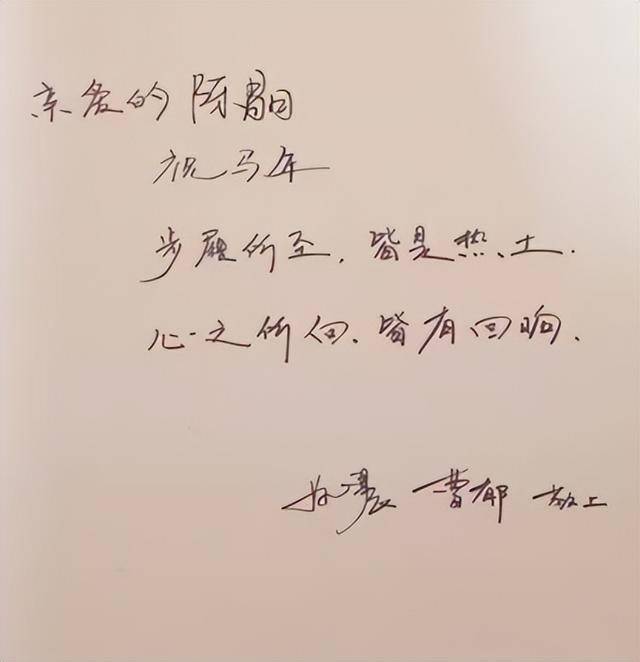 亲爱的 陈
祝马年
步履所至，皆是热土．
心之所向．皆有回响．
姚晨 曹郁 敬上